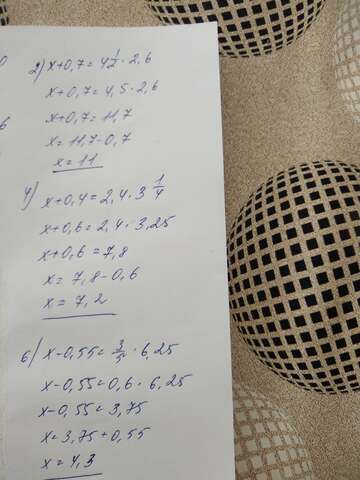 2) x+0,7=4 1/2 · 2,6
x+0,7=4,5·2,6
x+0,7=11,7
x=11,7-0,7
x=11
4) x+0,4=2,4·3 1/4
x+0,6=2,4·3,25
x+0,6=7,8
x=7,8-0,6
x=7,2
6) x-0,55=3/5 · 6,25
x-0,55=0,6·6,25
x-0,55=3,75
x=3,75+0,55
x=4,3